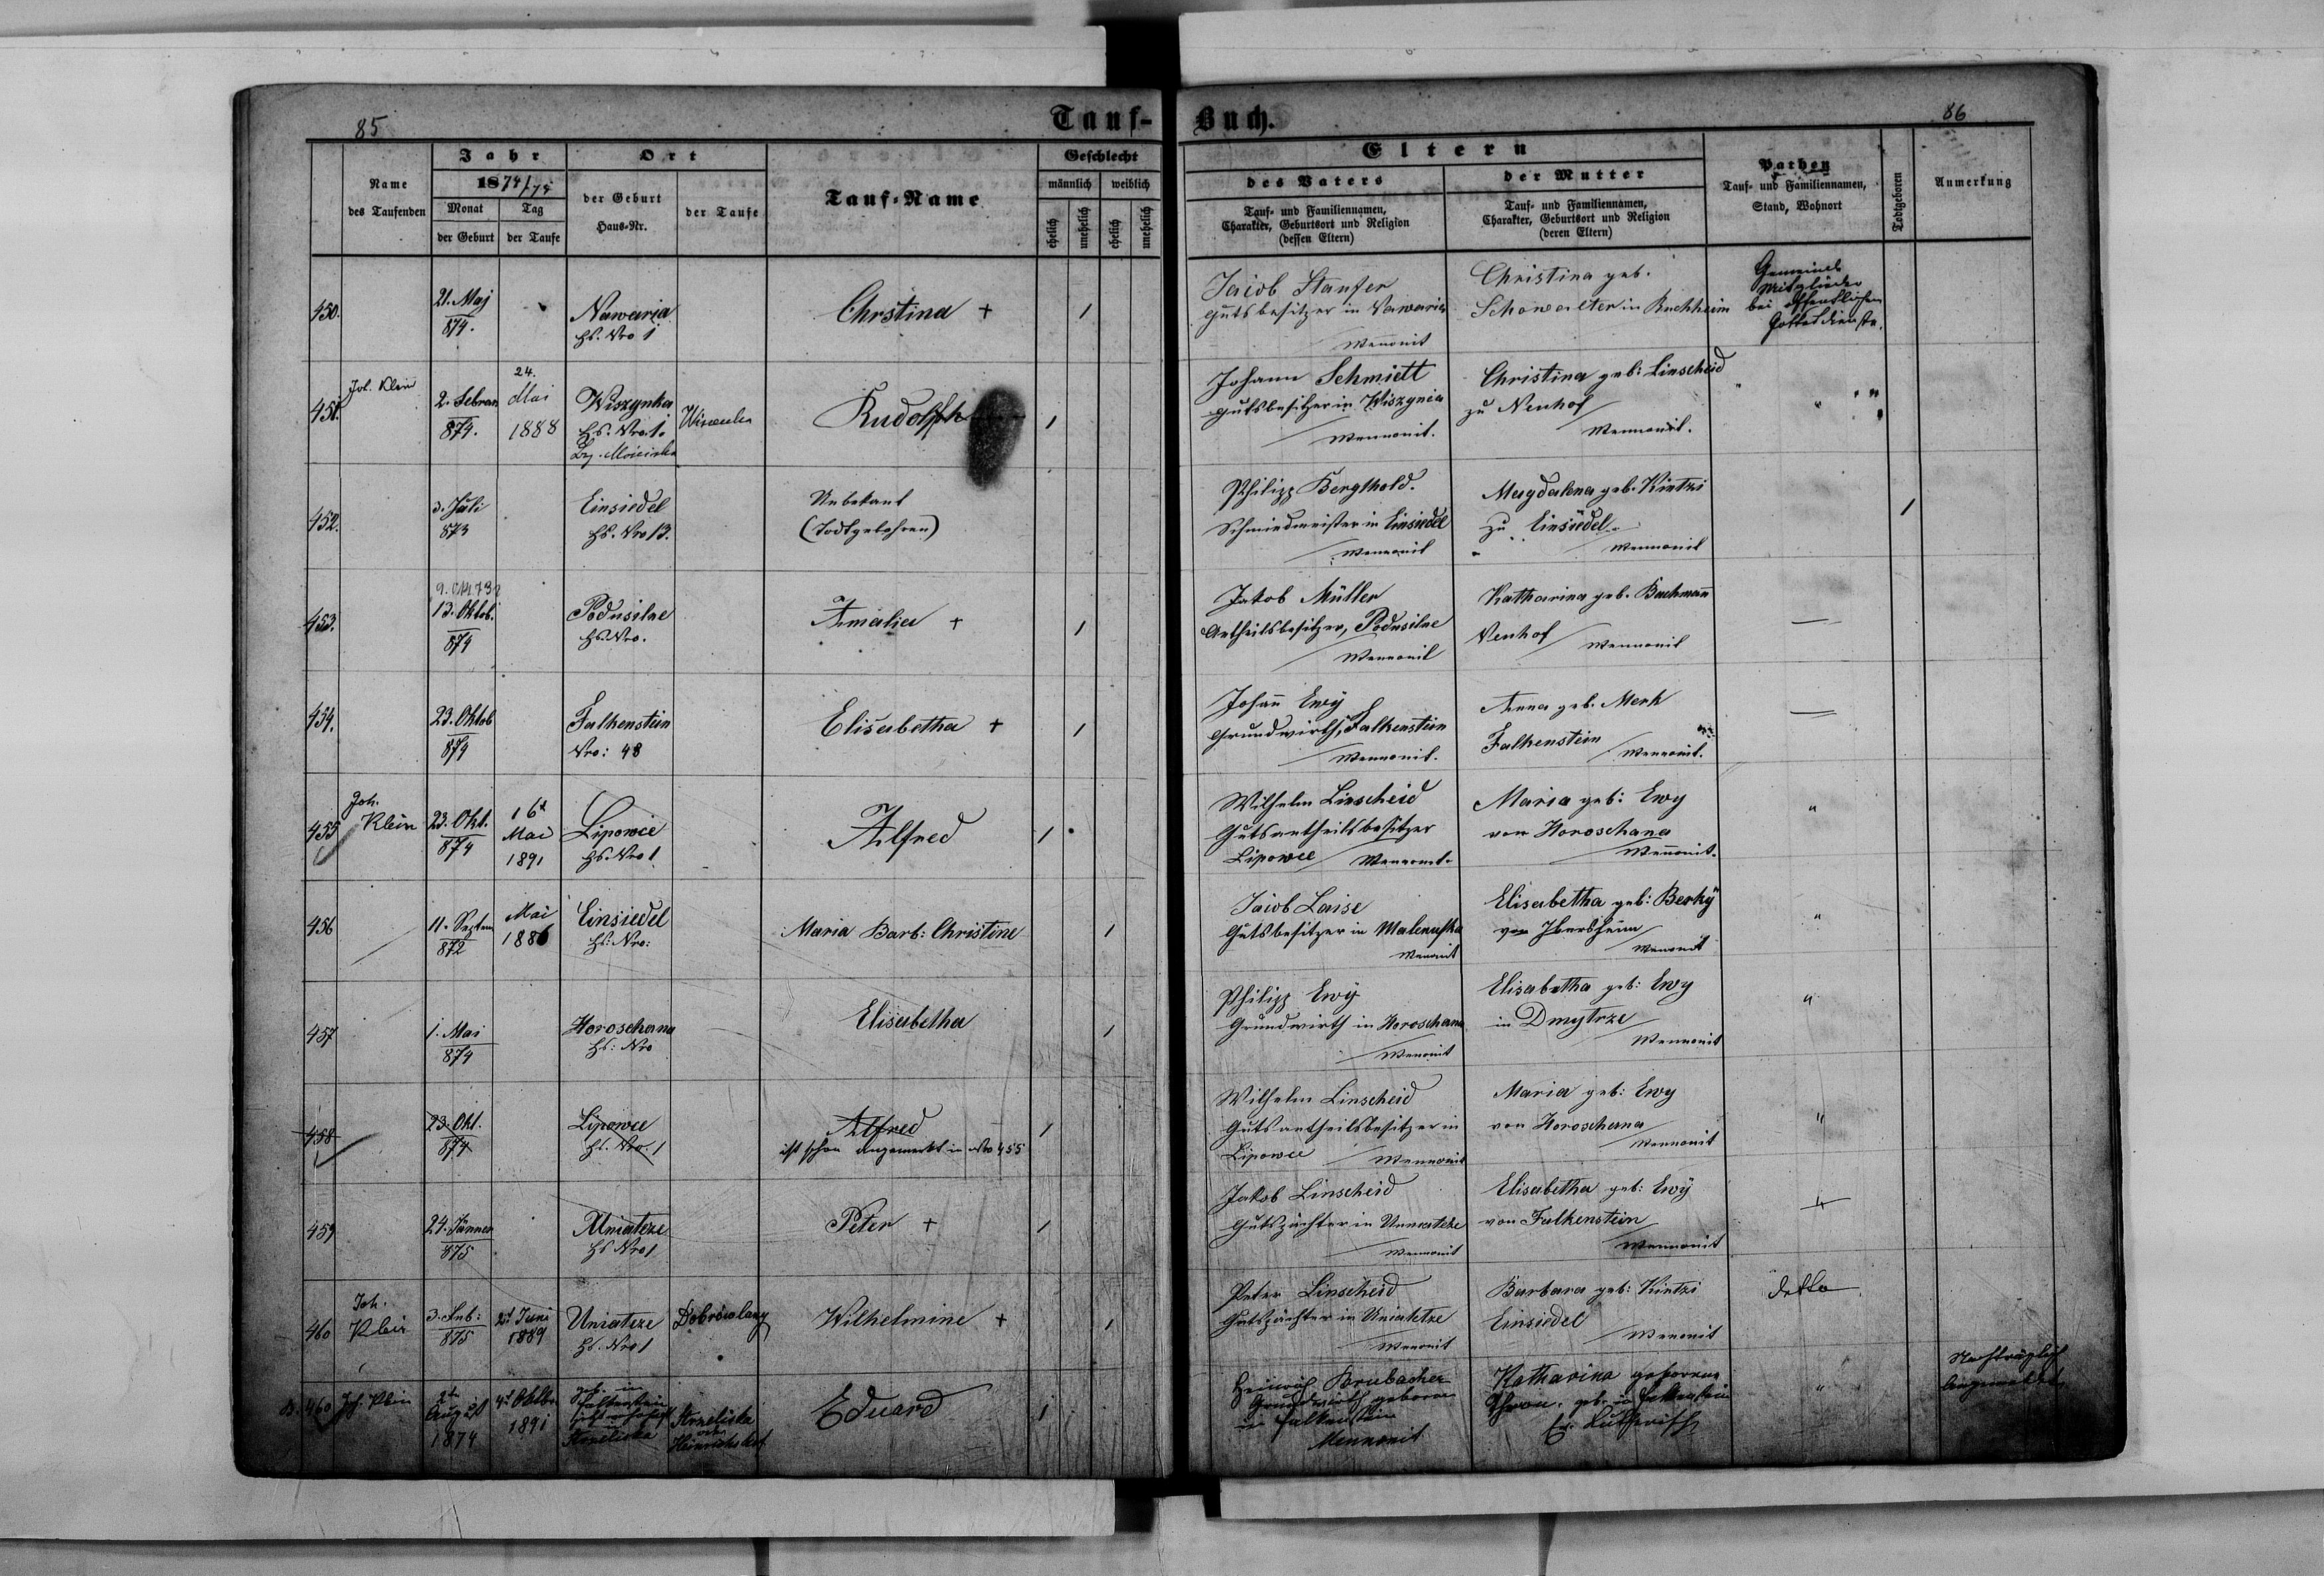 85
Tauf-
Buch.
86
Name
des Taufenden
Jahr
1874/75
Monat
der Geburt
Tag
der Taufe
Ort
der Geburt
Haus-Nr.
der Taufe
Tauf-Name
Geschlecht
männlich
weiblich
ehelich
unehelich
ehelich
unehelich
Eltern
des Vaters
Tauf- und Familiennamen,
Charakter, Geburtsort und Religion
(dessen Eltern)
der Mutter
Tauf- und Familiennamen,
Charakter, Geburtsort und Religion
(deren Eltern)
Pathen
Tauf- und Familiennamen,
Stand, Wohnort
Todtgeboren
Anmerkung
450.
21. Maj
874.
Nawaria
Hs. Nro 1
Chrstina +
1
Jacob Staufer
Gutsbesitzer in Nawaria
Menonit
Christina geb.
Schowalter in Ruchheim
Gemeinde
Mitglieder
bei öffentlichen
Gottesdienste.
451.
Joh. Klein
2. Febru
874.
24.
Mai
1888
Wiszynka
Hs. Nro. 1.
Rudolph
1
Johann Schmidt
Gutsbesitzer in Wiszynia
Mennonit.
Christina geb: Linscheid
zu Neuhof
Mennonit.
" " "
452.
3. Juli
873
Einsiedel
Hs. Nro 13.
Unbekant
(Todtgebohren)
Philipp Bergthold.
Schmiedmeister in Einsiedel
Mennonit
Magdalena geb. Kintzi
zu Einsiedel
Mennonit
1
453.
13. Oktob.
874
Podusilne
Hs. Nro.
Amalia +
1
Jakob Müller
Antheilsbesitzer, Podusilne
Mennonit
Katharina geb. Bachmann
Neuhof Mennonit
—
454.
23. Oktob
874
Falkenstein
Nro: 48
Elisabetha +
1
Johann Ewy
Grundwirth, Falkenstein
Mennonit.
Anna geb. Merk
Falkenstein
Mennonit.
—
455
Joh.
Klein
23. Okt.
874
16t
Mai
1891
Lipowce
Hs. Nro 1
Alfred
1
Wilhelm Linscheid
Gutsantheilsbesitzer
Lipowce Mennonit.
Maria geb: Ewy
von Horoschana
Mennonit.
"
456
11. Septem
872
Mai
1886
Einsiedel
Hs: Nro:
Maria Barb: Christine
1
Jacob Laise
Gutsbesitzer in
Menonit
Elisabetha geb: Berky
von Ibersheim
Menonit
"
457
1. Mai
874
Horoschana
Hs: Nro
Elisabetha
1
Philipp Ewy
Grundwirth in Horoschana
Menonit
Elisabetha geb: Ewy
in Dmytrze
Mennonit
"
458
23. Okt.
874
Lipowce
Hs. Nro. 1
Alfred
ist schon angemerkt in Nro 455
1
Wilhelm Linscheid
Gutsantheilsbesitzer in
Lipowce Mennonit
Maria geb: Ewy
von Horoschana
Mennonit
"
459
24. Jänner
875
Uniatcze
Hs Nro 1
Peter +
1
Jakob Linscheid
Gutspächter in Uniatcze
Mennonit
Elisabetha geb: Ewy
von Falkenstein
Mennonit
460
Joh.
Klein
3. Feb:
875
2t Juni
1889
Uniatcze
Hs. Nro 1
Wilhelmine +
1
Peter Linscheid
Gutspächter in Uniatcze
Menonit
Barbara geb: Kintzi
Einsiedel
Menonit
detto
B. 460
Joh. Klein
2t
August
1874
4t Oktbr
1891
geb. in
Falkenstein
Strzeliska
Strzeliska
oder
Heinrichshof
Eduard
1
Heinrich Brubacher
Grundwirth geboren
in Falkenstein
Mennonit
Katharina geborene
geb. in Falkenstein
Ev. Lutherisch
"
Nachträglich
Angemeldet